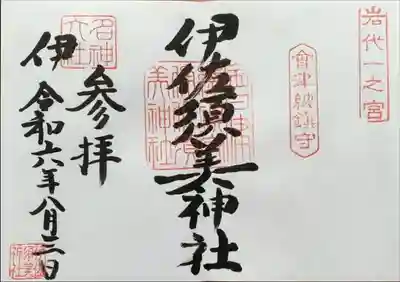 岩代一之宮
會津総鎮守
伊佐須美神社
名神大社
参拝
伊 令和六年八月三日